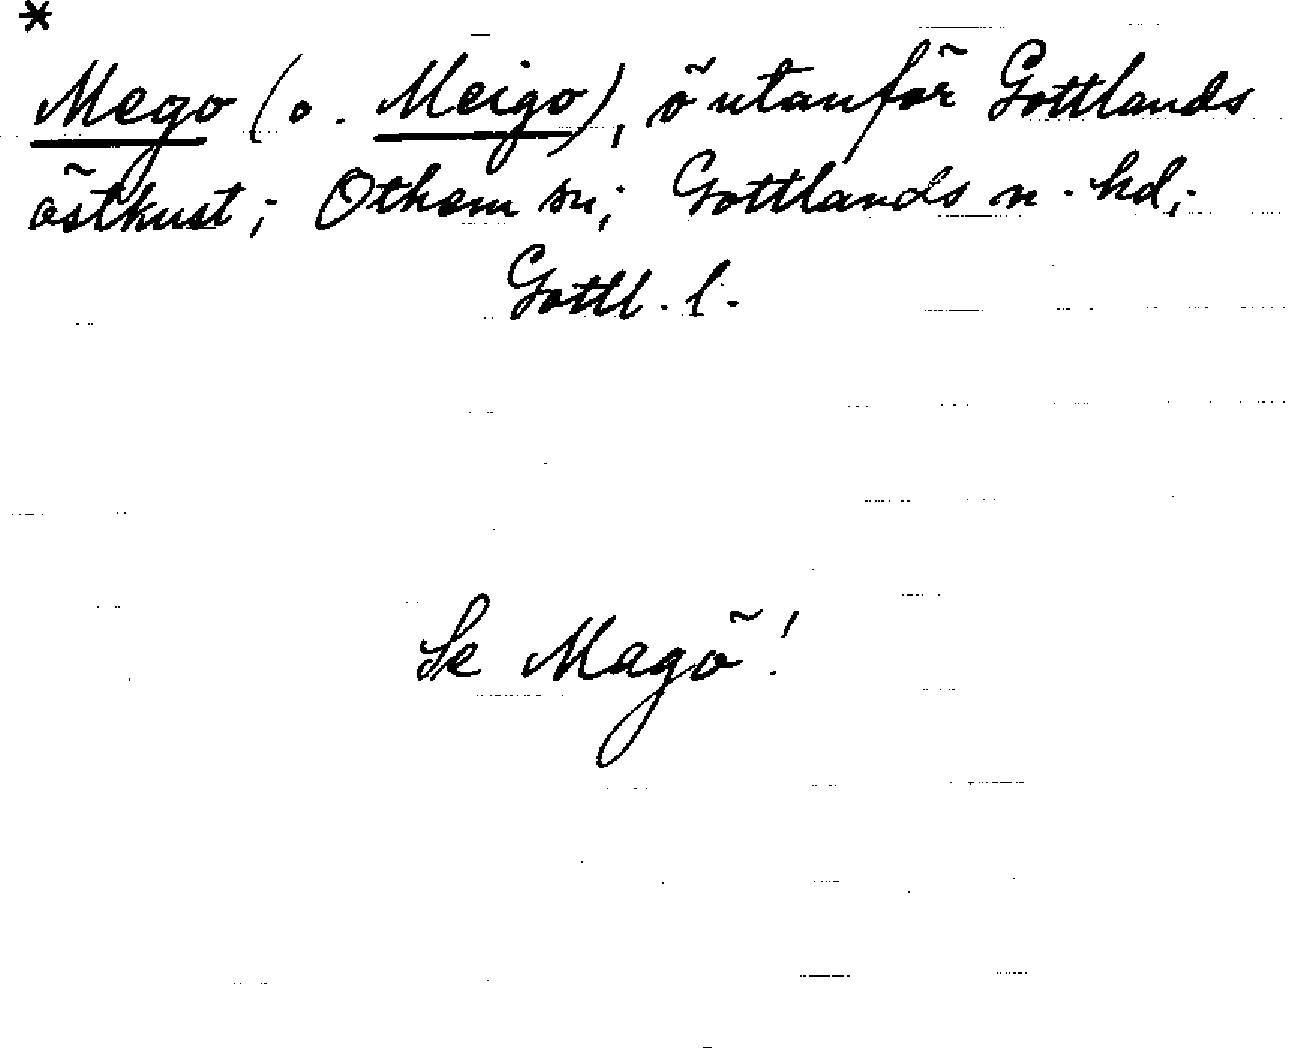 *
Mego (o. Meigo), ö utanför Gottlands
östkust; Othem sn; Gottlands n. hd;
Gottl. l.
Se Magö!